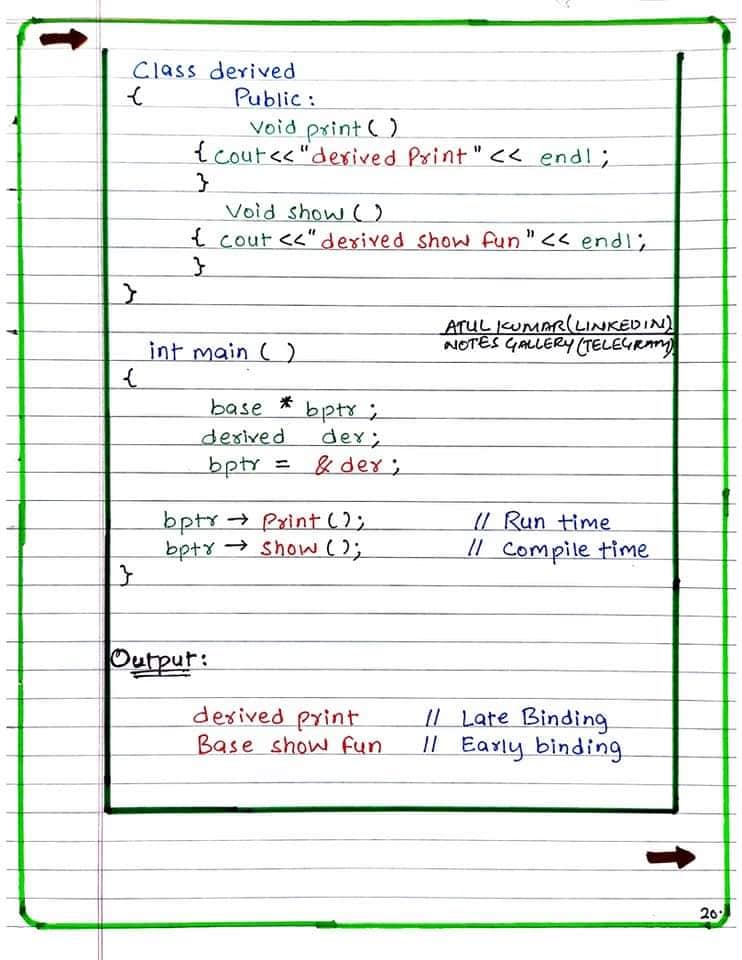 Class derived
{ Public:
Void print ( )
{ cout<<"derived Print" << endl ;
}
Void show ( )
{ cout <<"derived show fun" << endl;
}
}
ATUL KUMAR (LINKEDIN)
NOTES GALLERY (TELEGRAM)
int main ( )
{
base * bptr ;
derived der ;
bptr = & der ;
bptr → Print ( ); // Run time
bptr → Show ( ); // Compile time
}
Output:
derived print // Late Binding
Base show fun // Early binding
20.